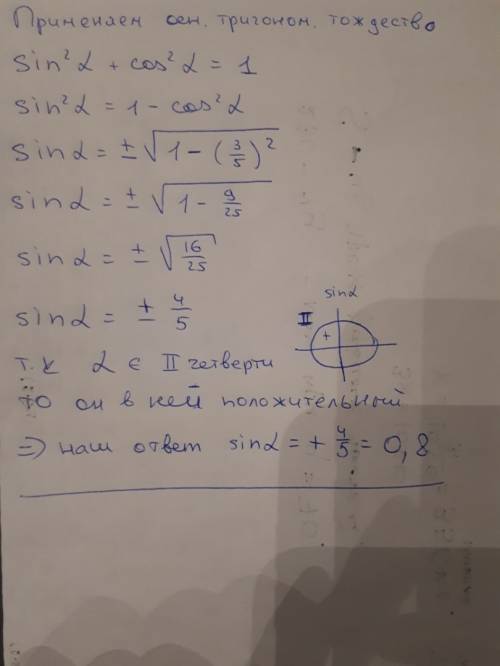 Применяем осн. тригоном. тождество
sin²α + cos²α = 1
sin²α = 1 - cos²α
sinα = ± √(1 - (3/5)²)
sinα = ± √(1 - 9/25)
sinα = ± √(16/25)
sinα = ± 4/5
sinα
II
+
т.к α ∈ II четверти
то он в ней положительный
⇒ наш ответ sinα = + 4/5 = 0,8